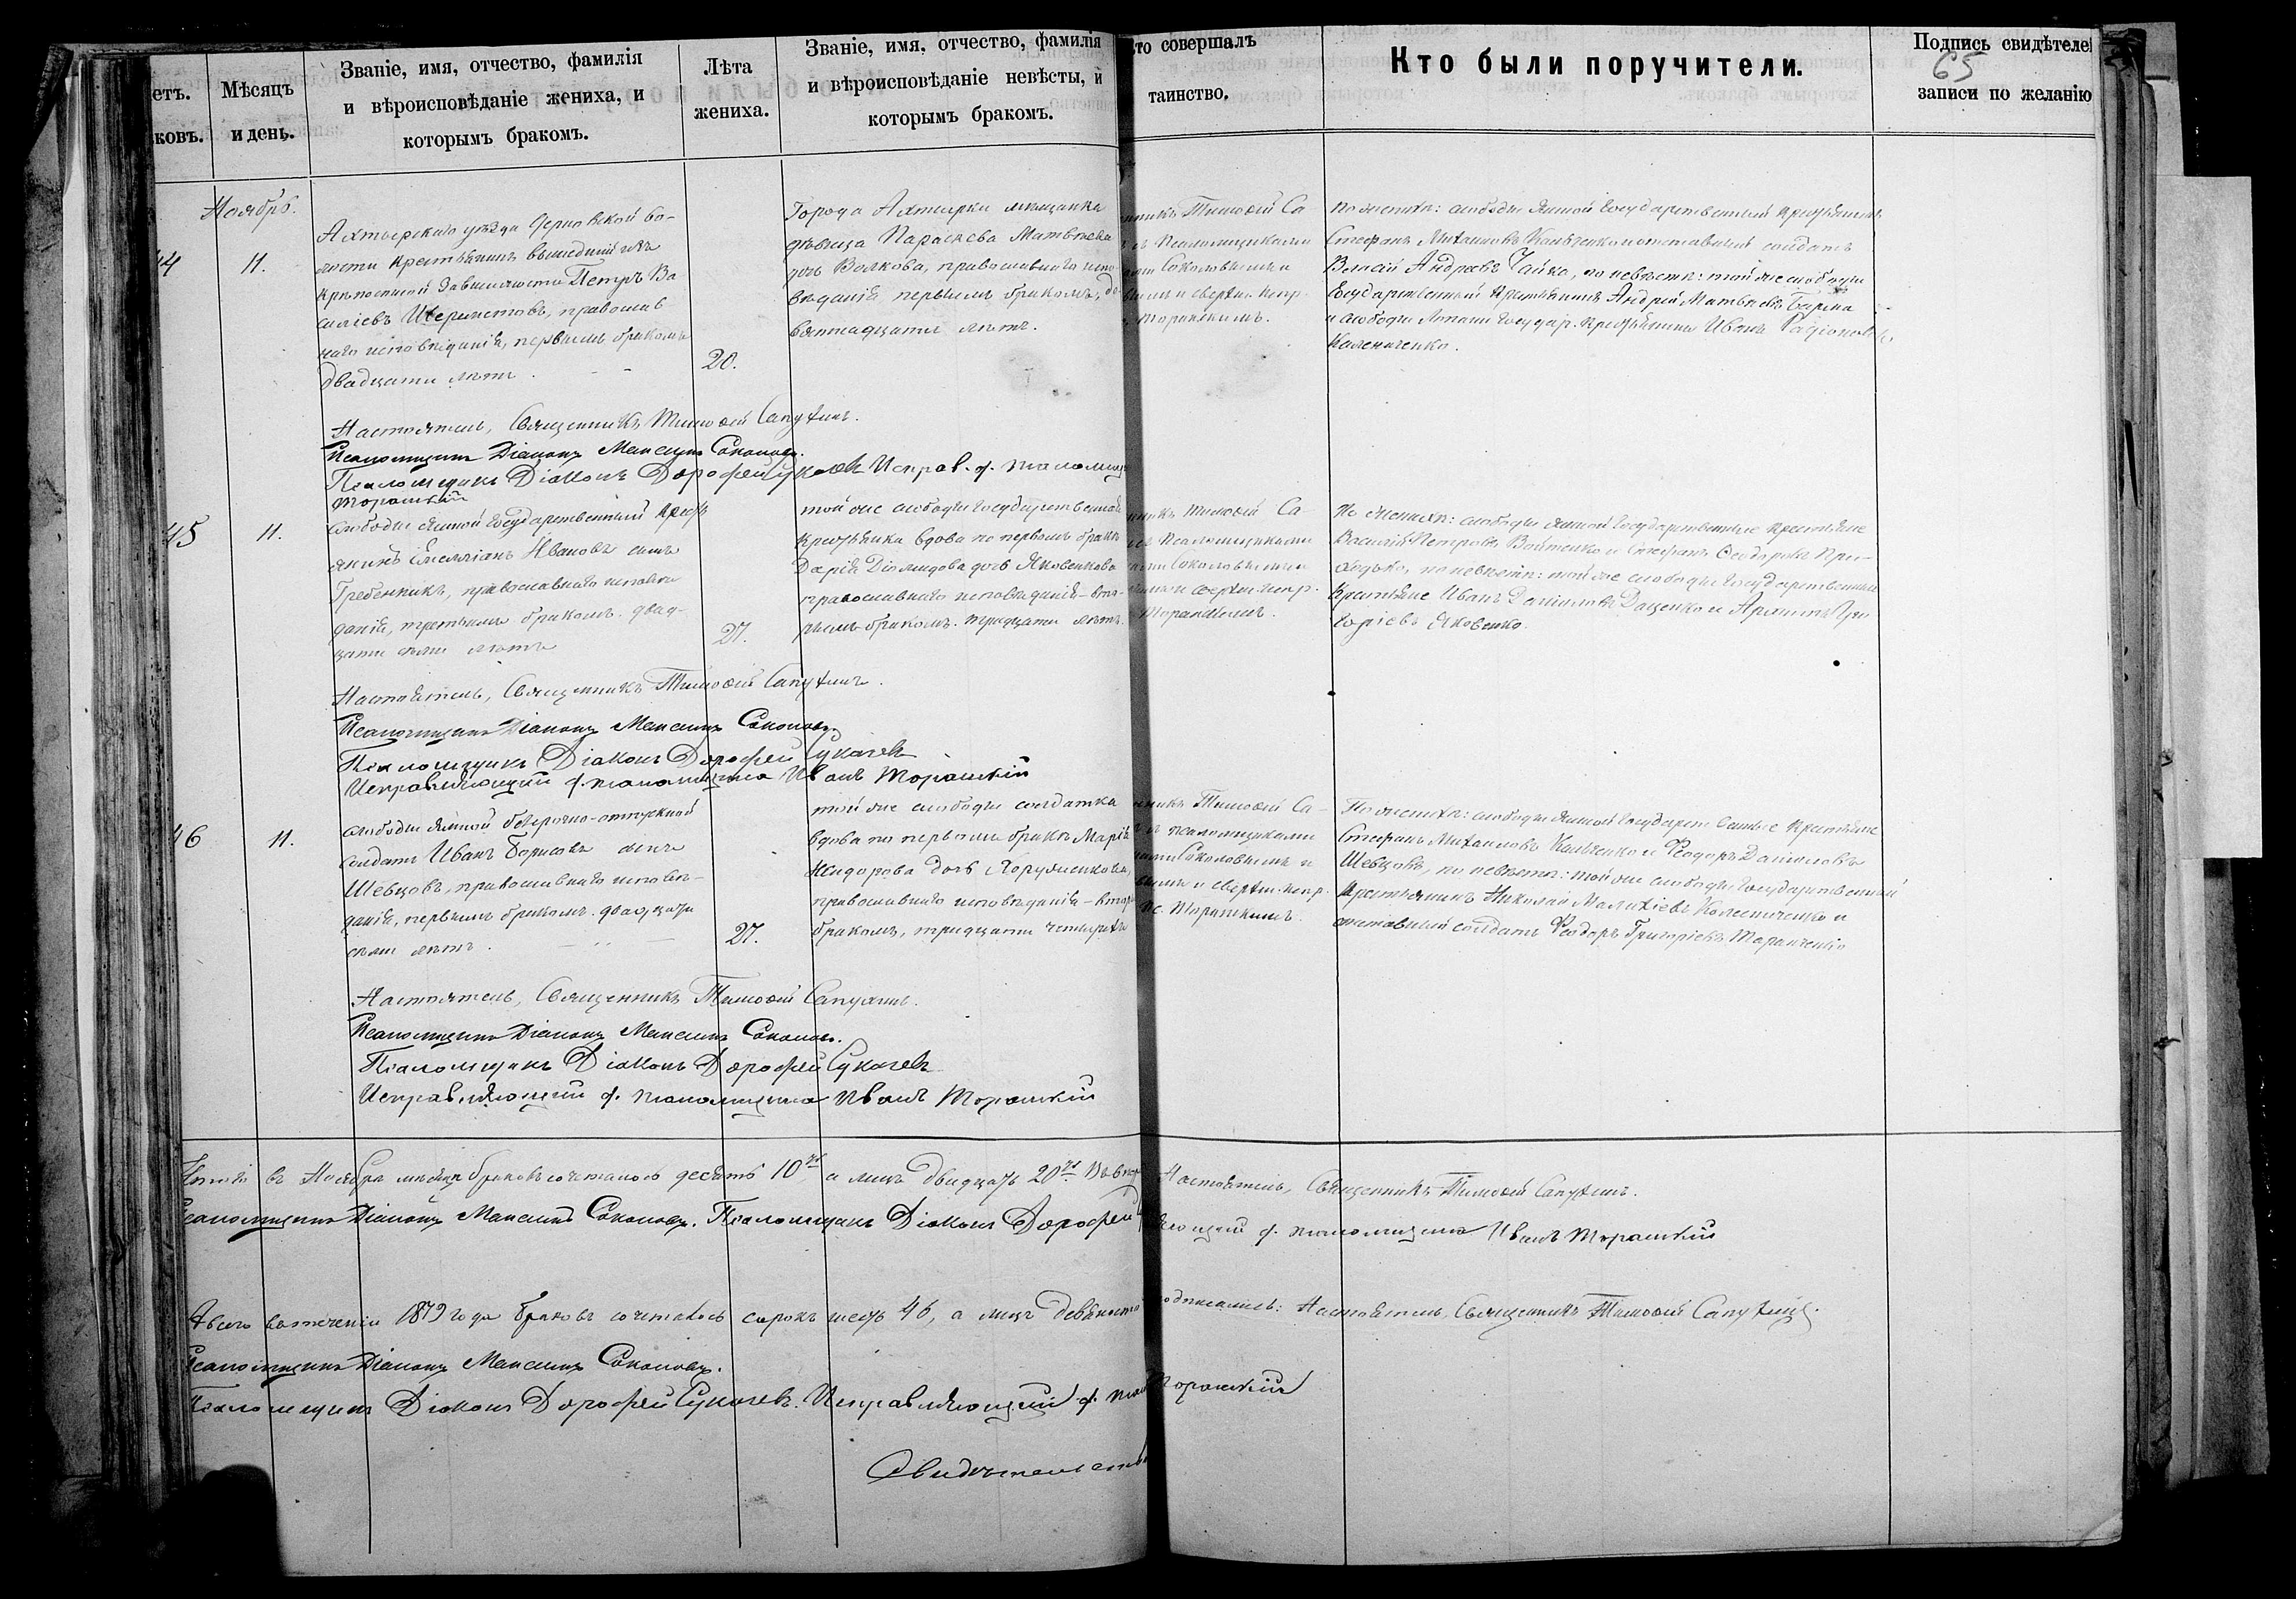 етъ.
ковъ.
Мѣсяцъ
и день.
Званіе, имя, отчество, фамилія
и вѣроисповѣданіе жениха, и
которымъ бракомъ.
Лѣта
жениха.
Званіе, имя, отчество, фамилія
и вѣроисповѣданіе невѣсты, и
которымъ бракомъ.
то совершалъ
таинство.
Кто были поручители.
Подпись свидѣтеле
записи по желанію
65
Ноябрь.
44
11.
Ахтырскаго уѣзда во-
лости крестьянинъ вышедшій изъ
крѣпостной зависимости Петръ Ва
силіевъ православ
наго исповѣданія, первымъ бракомъ
двадцати лѣтъ.
20.
Города Ахтырки мѣщанка
дѣвица Параскева Матвѣева
дочь Волкова, православнаго испо
вѣданія первымъ бракомъ, де
вятнадцати лѣтъ.
нникъ Тимоѳей Са
съ Псаломщиками
Соколовымъ и
и сверхъ. испр.
Торанскимъ.
По женихѣ: слободы Ямной государственный крестьянинъ
Стефанъ Михаиловъ Кальченко и отставный солдатъ
Власій Андреевъ Чайка, по невѣстѣ: той же слободы
Государственный крестьянинъ Андрей Матвѣевъ
и слободы государ. крестьянинъ Иванъ Родіоновъ
Калениченко.
Настоятель, Священникъ Тимоѳей Сапухинъ.
Псаломщикъ Діаконъ Максимъ Соколовъ.
Псаломщикъ Діаконъ Дорофей Сукачевъ Исправ. д. псаломщ
Торанскій
45
11.
слободы Ямной государственный крест
янинъ Емеліанъ Ивановъ сынъ
Гребенникъ, православнаго исповѣ
данія, третьимъ бракомъ. двад-
цати семи лѣтъ
27.
той же слободы государственная
крестьянка вдова по первомъ бракѣ
Дарія Діомидова дочь Яковенкова
православнаго исповѣданія - вто-
рымъ бракомъ. тридцати лѣтъ.
нникъ Тимоѳей Са-
съ Псаломщиками
Соколовымъ и
и сверхъ. испр.
Торанскимъ.
По женихѣ: слободы Ямной государственные крестьяне
Василій Петровъ Войтенко и Стефанъ Ѳеодоровъ При-
ходько, по невѣстѣ: той же слободы государственные
крестьяне Иванъ Даниловъ Даценко и Гри
горіевъ Яковенко.
Настоятель, Священникъ Тимоѳей Сапухинъ.
Псаломщикъ Діаконъ Максимъ Соколовъ.
Псаломщикъ Діаконъ Дорофей Сукачевъ
Исправляющій д. псаломщика Иванъ Торанскій
46
11.
слободы Ямной безсрочно-отпускной
солдатъ Иванъ Борисовъ сынъ
Шевцовъ, православнаго исповѣ-
данія, первымъ бракомъ. двадцати
семи лѣтъ.
27.
той же слободы солдатка
вдова по первомъ бракѣ Марія
дочь Хоруженкова,
православнаго исповѣданія - втор
бракомъ, тридцати четырехъ
нникъ Тимоѳей Са-
съ псаломщиками
Соколовымъ и
и сверхъ. испр.
пс. Торанскимъ.
По женихѣ: слободы Ямной государственные крестьяне
Стефанъ Михаиловъ Кальченко и Ѳеодоръ Даниловъ
Шевцовъ, по невѣстѣ: той же слободы государственный
крестьянинъ Николай Колесниченко и
отставный солдатъ Ѳеодоръ Григоріевъ Таранченко
Настоятель, Священникъ Тимоѳей Сапухинъ.
Псаломщикъ Діаконъ Максимъ Соколовъ.
Псаломщикъ Діаконъ Дорофей Сукачевъ
Исправляющій д. псаломщика Иванъ Торанскій
Итого въ Ноябрѣ мѣсяцѣ браковъ сочеталось десять 10, а лицъ двадцать 20
Настоятель, Священникъ Тимоѳей Сапухинъ.
Псаломщикъ Діаконъ Максимъ Соколовъ. Псаломщикъ Діаконъ Дорофей
яющій д. псаломщика Иванъ Торанскій
А всего въ теченіи 1879 года браковъ сочеталось сорокъ шесть 46, а лицъ девяносто
одписались: Настоятель, Священникъ Тимоѳей Сапухинъ.
Псаломщикъ Діаконъ Максимъ Соколовъ.
Псаломщикъ Діаконъ Дорофей Сукачевъ. Исправляющій д. псал
Торанскій
Свидѣтельств